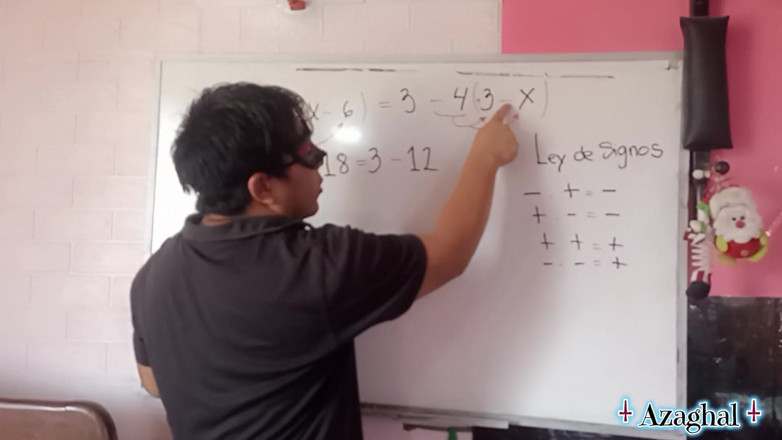 x - 6) = 3 - 4(3 - x)
18 = 3 - 12
Ley de Signos
- · + = -
+ · - = -
+ · + = +
- · - = +
Azaghal